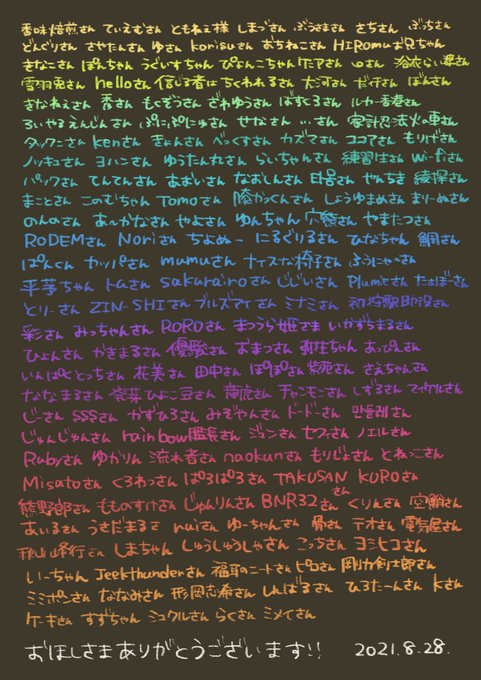 香味焙煎さん ていえむさん ともねえ様 しまづさん ぶうさまさん さちさん ぷっちさん
どんぐりさん さやたんさん ゆさん korisuさん おちねこさん HIRomuお兄ちゃん
きなこさん ぽんちゃん うぐいすちゃん ぴよんこちゃん
雪羽兎さん helloさん 信じる者はちくわれるさん 大河さん だい行さん ばんさん
きなねえさん 杏さん もくぞうさん ざわゆうさん ばすくるさん ルカー香港さん
ろいやるえんじんさん ぷにぷにゅさん せなさん …さん
タックンさん kenさん きょんさん べっくすさん カズマさん ココアさん もりげさん
ノッキュさん ヨハンさん ゆうたん丸さん らいちゃんさん 練習生さん Wi-fiさん
パックさん てんてんさん あおいさん なおしんさん 日名さん やんちきさん 綾保さん
まことさん このむちゃん Tomoさん 膝かっくんさん しょうゆまめさん まりーぬさん
のんのさん あーかなさん やよさん ゆんちゃん 穴熊さん やまたつさん
RODEMさん Noriさん ちよぬー にるぐりるさん ひなちゃん 鯛さん
ぱんくん カッパさん mumuさん ナイスな椅子さん ぷうにゃーさん
平芋ちゃん トムさん sakurairoさん じじいさん Plumieさん たぉぼーさん
とりーさん ZIN-SHIさん ブルズアイさん ミナミさん
彩さん みっちゃんさん ROROさん まつうら姫さま いかずちまるさん
ひょんさん かきまるさん 優駿さん おまつさん 弥生ちゃん あっぴぇさん
いんぱととっちさん 花美さん 田中さん ぽぽぽさん 紫苑さん さえちゃんさん
ななまるさん ひよこ豆さん 龍虎さん チャンモニさん しずるさん マイケルさん
じーさん SSSさん かずひろさん みぞやんさん ドードーさん
じゅんじゅんさん rainbow艦長さん ジョンさん セフィさん ノエルさん
Rubyさん ゆかりん 流れ者さん naokunさん もりじょさん とねっこさん
Misatoさん くろねっさん ぱろぱろさん TAKUSANさん KUROさん
熊野郎さん もものすけさん じゅんりんさん BNR32さん くりんさん 空鯛さん
あいるさん うさだまるさん nuiさん ゆーちゃんさん 骨さん テオさん 電気屋さん
秋山峰行さん しまちゃん しゅうしゅうしゃさん こっちさん ヨシヒコさん
いーちゃん Jeekthunderさん 福耳のニートさん ピロさん 剛力剣士郎さん
ミミポンさん ななみさん 形岡志希さん しんばるさん ひろたーんさん Kさん
ケーキさん すずちゃん シュクルさん らくさん ミメイさん
おほしさまありがとうございます!! 2021.8.28.